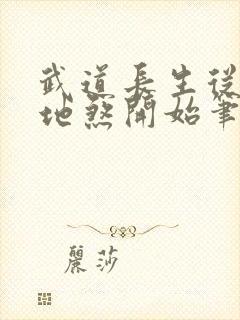 武道長生從
地煞開始筆
麗莎